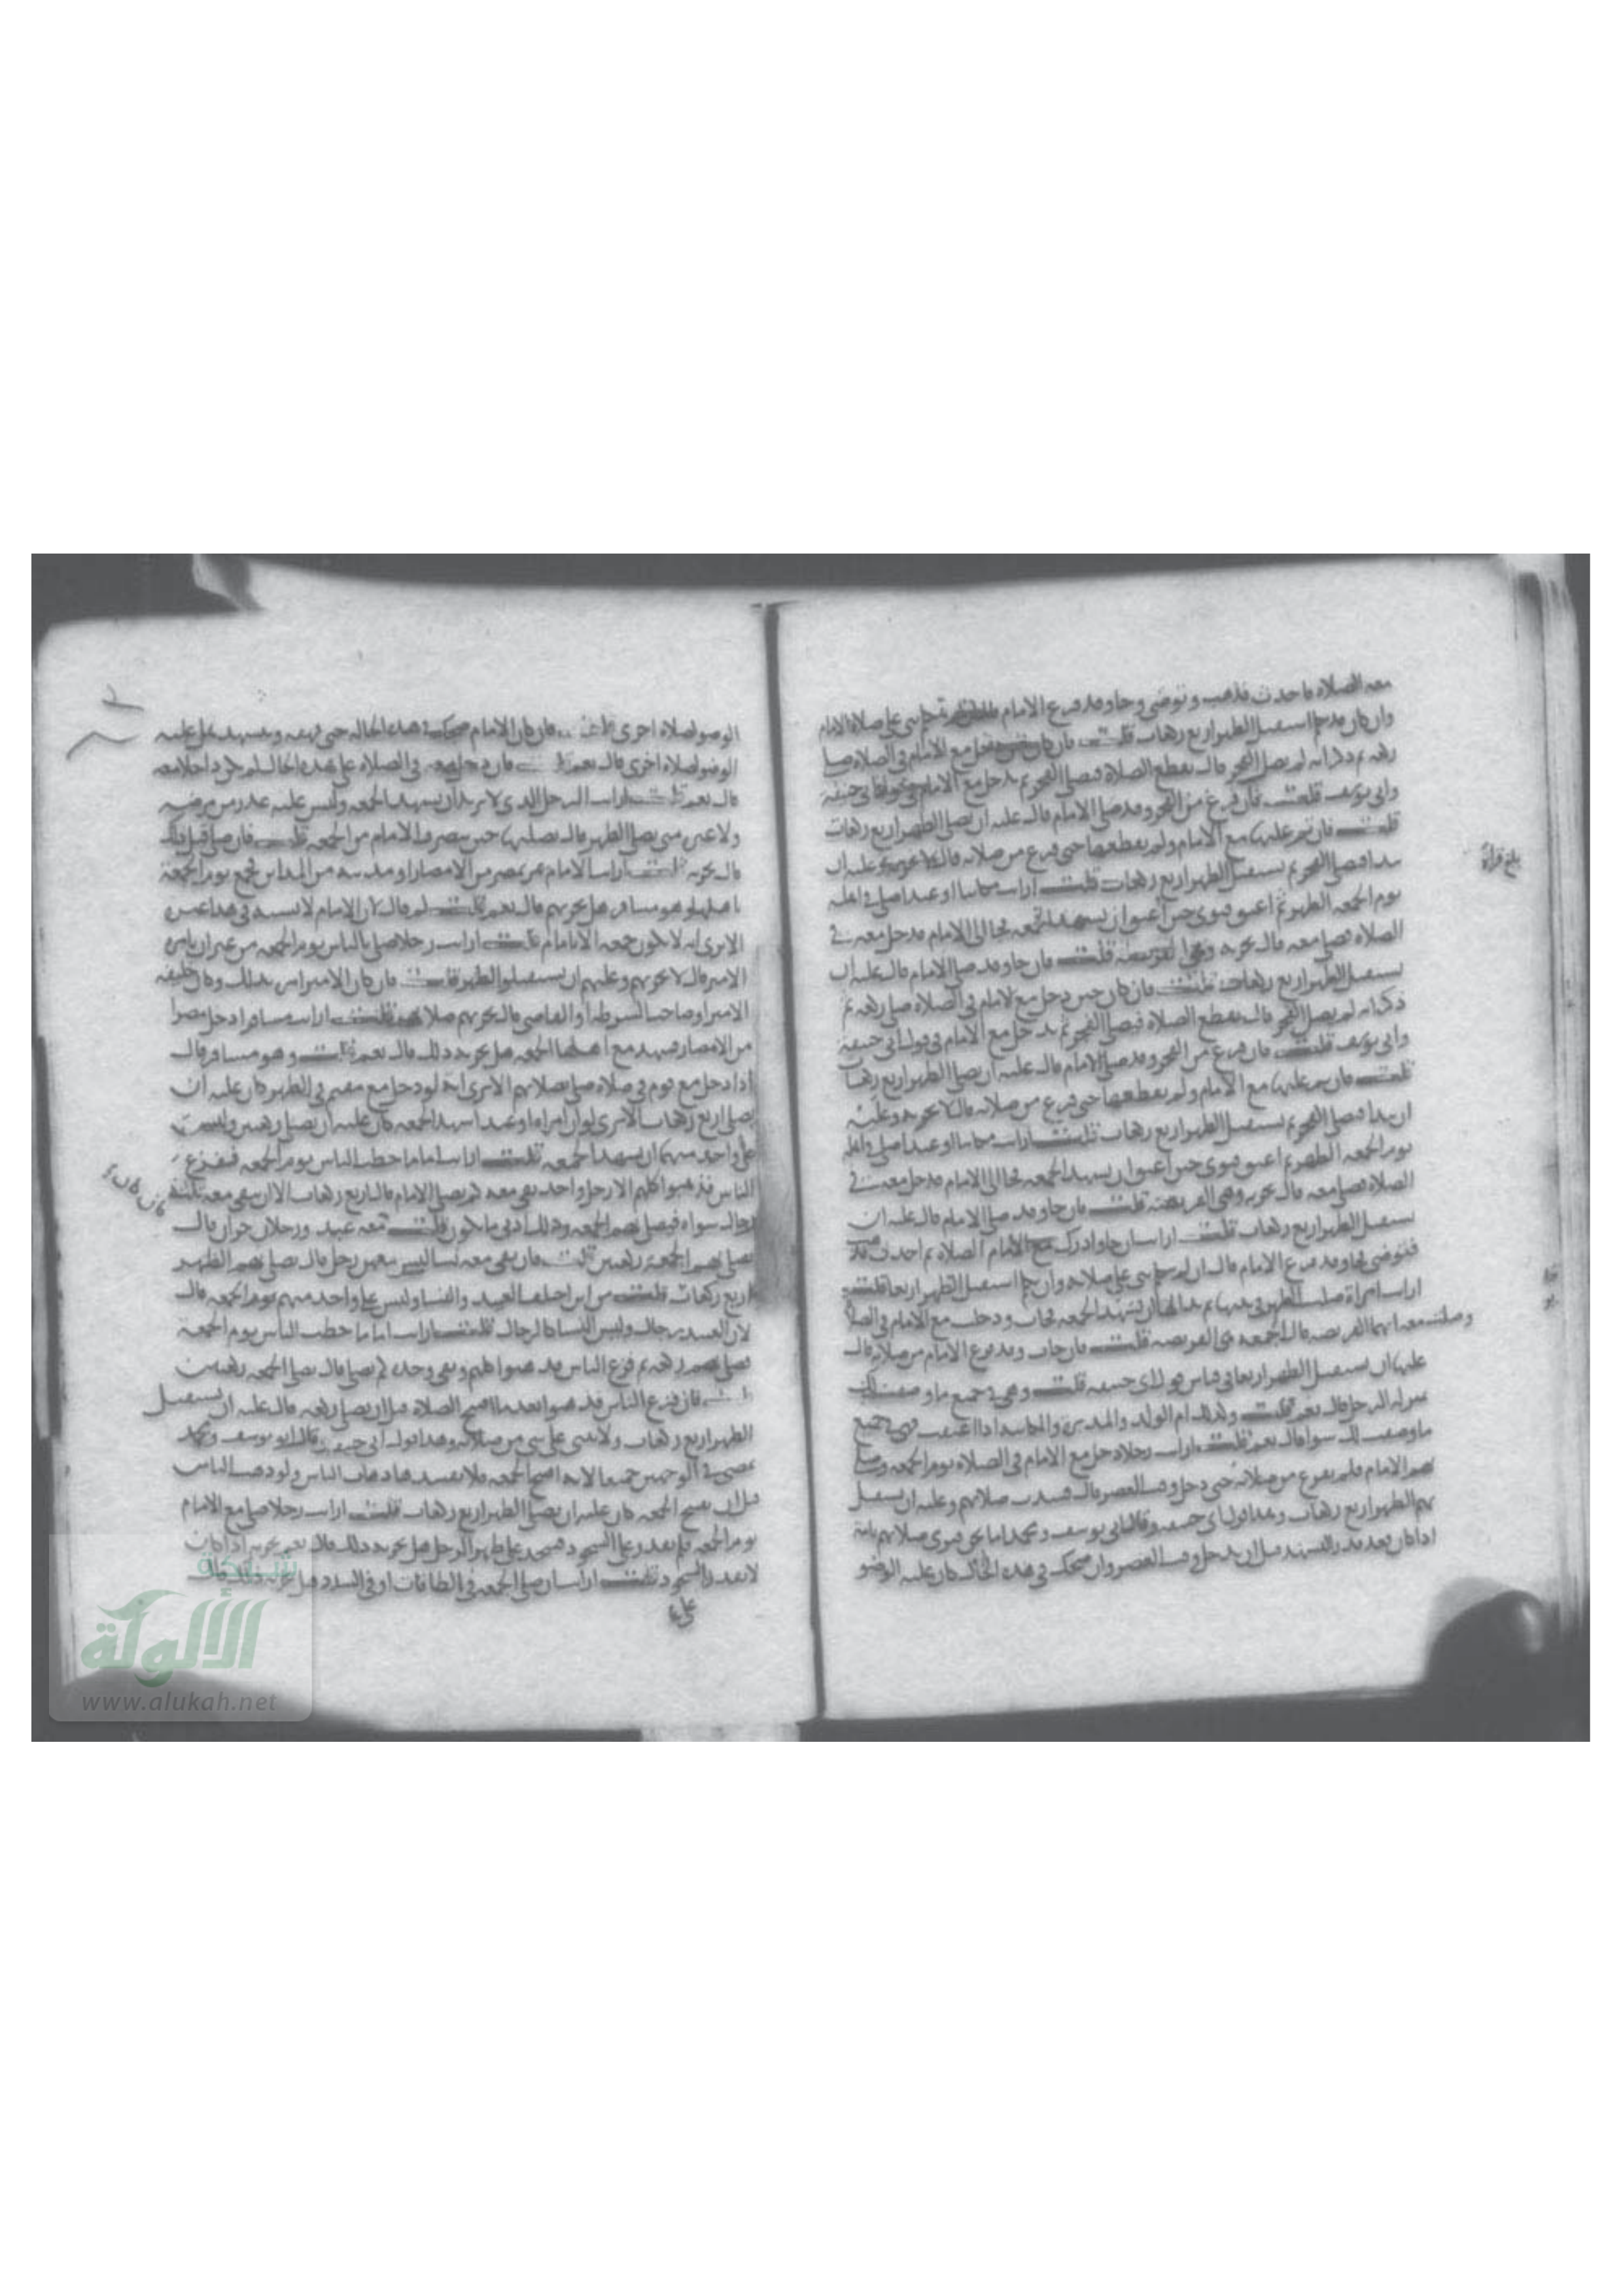 معه الصلاة فاحدث فذهب وتوضى وجا وقد فرغ الامام
وان كان قد استقبل الظهر اربع ركعات قلت فان كان حين دخل مع الامام في الصلاة صلى
ركعه ثم ذكر انه لم يصل الفجر قال يقطع الصلاة فيصلي الفجر ثم يدخل مع الامام في قول ابي حنيفة
وابي يوسف قلت فان فرغ من الفجر وقد صلى الامام قال عليه ان يصلي الظهر اربع ركعات
قلت فان تم عليها مع الامام ولم يقطعها حتى فرغ من صلاته قال لا يجزيه وعليه ان
يبدا فيصلي الفجر ثم يستقبل الظهر اربع ركعات قلت ارايت مكاتبا او عبدا صلى في اهله
يوم الجمعه الظهر ثم اعتق فنوى حين اعتق ان يشهد الجمعه فجا الى الامام فدخل معه في
الصلاة فصلى معه قال يجزيه وهي الفريضه قلت فان جا وقد صلى الامام قال عليه ان
يستقبل الظهر اربع ركعات قلت فان كان حين دخل مع الامام في الصلاة صلى ركعه ثم
ذكر انه لم يصل الفجر قال يقطع الصلاة فيصلي الفجر ثم يدخل مع الامام في قول ابي حنيفة
وابي يوسف قلت فان فرغ من الفجر وقد صلى الامام قال عليه ان يصلي الظهر اربع ركعات
قلت فان تم عليها مع الامام ولم يقطعها حتى فرغ من صلاته قال لا يجزيه وعليه
ان يبدا فيصلي الفجر ثم يستقبل الظهر اربع ركعات قلت ارايت مكاتبا او عبدا صلى في اهله
يوم الجمعه الظهر ثم اعتق فنوى حين اعتق ان يشهد الجمعه فجا الى الامام فدخل معه في
الصلاة فصلى معه قال يجزيه وهي الفريضه قلت فان جا وقد صلى الامام قال عليه ان
يستقبل الظهر اربع ركعات قلت ارايت ان جا وادرك مع الامام الصلاة ثم احدث
فتوضى فجا وقد فرغ الامام قال ان لم يتكلم بنى على صلاته وان تكلم استقبل الظهر اربعا قلت
ارايت امراة صلت الظهر في بيتها ثم بدا لها ان تشهد الجمعه فجات ودخلت مع الامام في الصلاة
وصلت معه ايهما الفريضه قال الجمعه هي الفريضه قلت فان جات وقد فرغ الامام من صلاته قال
عليها ان تستقبل الظهر اربعا في قياس قول ابي حنيفه قلت وهي في جميع ما وصفت لك
بمنزله الرجل قال نعم قلت وكذلك ام الولد والمدبره والمكاتبه اذا اعتقت فهي في جميع
ما وصفت لك سوا قال نعم قلت ارايت رجلا دخل مع الامام في الصلاة يوم الجمعه وصلى
بهم الامام فلم يفرغ من صلاته حتى دخل وقت العصر قال فسدت صلاتهم وعليه ان يستقبل
بهم الظهر اربع ركعات وهذا قول ابي حنيفه وقال ابي يوسف ومحمد اما نحن فنرى صلاتهم تامة
اذا كان قعد قدر التشهد قبل ان يدخل وقت العصر وان ضحك في هذه الحال كان عليه الوضو
بلغ قراة
الوضو لصلاة اخرى قلت فان كان الامام ضحك في هذه الحاله حتى قهقه وتشهد هل عليه
الوضو لصلاة اخرى قال نعم قلت فان دخل معه في الصلاة على هذه الحال لم يكن داخلا معه
قال نعم قلت ارايت الرجل الذي لا يريد ان يشهد الجمعه وليس عليه عذر من مرض
ولا غيره متى يصلي الظهر قال يصليها حين ينصرف الامام من الجمعه قلت فان صلى قبل ذلك
قال يجزيه قلت ارايت الامام يمر بمصر من الامصار او مدينه من المداين فيجمع يوم الجمعة
باهلها وهو مسافر هل يجزيهم قال نعم قلت لم قال لان الامام لا يشبه في هذا غيره
الا ترى انه لا يكون جمعه الا بامام قلت ارايت رجلا صلى بالناس يوم الجمعه من غير ان يامره
الامير قال لا يجزيهم وعليهم ان يستقبلوا الظهر قلت فان كان الامير امر بذلك وكان خليفه
الامير او صاحب الشرطه او القاضي قال يجزيهم صلاتهم قلت ارايت مسافرا دخل مصرا
من الامصار فشهد مع اهلها الجمعه هل يجزيه ذلك قال نعم قلت وهو مسافر قال
اذا دخل مع قوم في صلاة صلى بصلاتهم الا ترى انه لو دخل مع مقيم في الظهر كان عليه ان
يصلي اربع ركعات الا ترى لو ان امراه او عبدا شهد الجمعه كان عليه ان يصلي ركعتين وليست
على واحد منهما ان يشهد الجمعه قلت ارايت اماما خطب الناس يوم الجمعه ففزع
الناس فذهبوا كلهم الا رجل واحد بقي معه كم يصلي الامام قال اربع ركعات الا ان يبقى معه ثلاثة
رجال سواه فيصلي بهم الجمعه وذلك ادنى ما يكون قلت معه عبيد ورجلان حران قال
يصلي بهم الجمعه ركعتين قلت فان بقي معه نسا ليس معهن رجل قال يصلي بهم الظهر
اربع ركعات قلت من اين اختلف العبيد والنسا وليس على واحد منهم يوم الجمعه قال
لان العبيد رجال وليس النسا كالرجال قلت ارايت اماما خطب الناس يوم الجمعة
فصلى بهم ركعه ثم فزع الناس فذهبوا كلهم وبقي وحده كم يصلي قال يصلي الجمعه ركعتين
قلت فان فزع الناس فذهبوا بعد ما افتتح الصلاة قبل ان يصلي ركعه قال عليه ان يستقبل
الظهر اربع ركعات ولا يبني على شي من صلاته وهذا قول ابي حنيفه وقال ابو يوسف ومحمد
يمضي في الوجهين جميعا لانه افتتح الجمعه فلا يفسدها ذهاب الناس ولو ذهب الناس
قبل ان يفتتح الجمعه كان عليه ان يصلي الظهر اربع ركعات قلت ارايت رجلا صلى مع الامام
يوم الجمعه فلم يقدر على السجود فسجد على ظهر الرجل هل يجزيه ذلك قال نعم يجزيه اذا كان
لا يقدر السجود قلت ارايت ان صلى الجمعه في الطاقات او في السدد هل يجزيه ذلك قال
شبكة
الألوكة
www.alukah.net